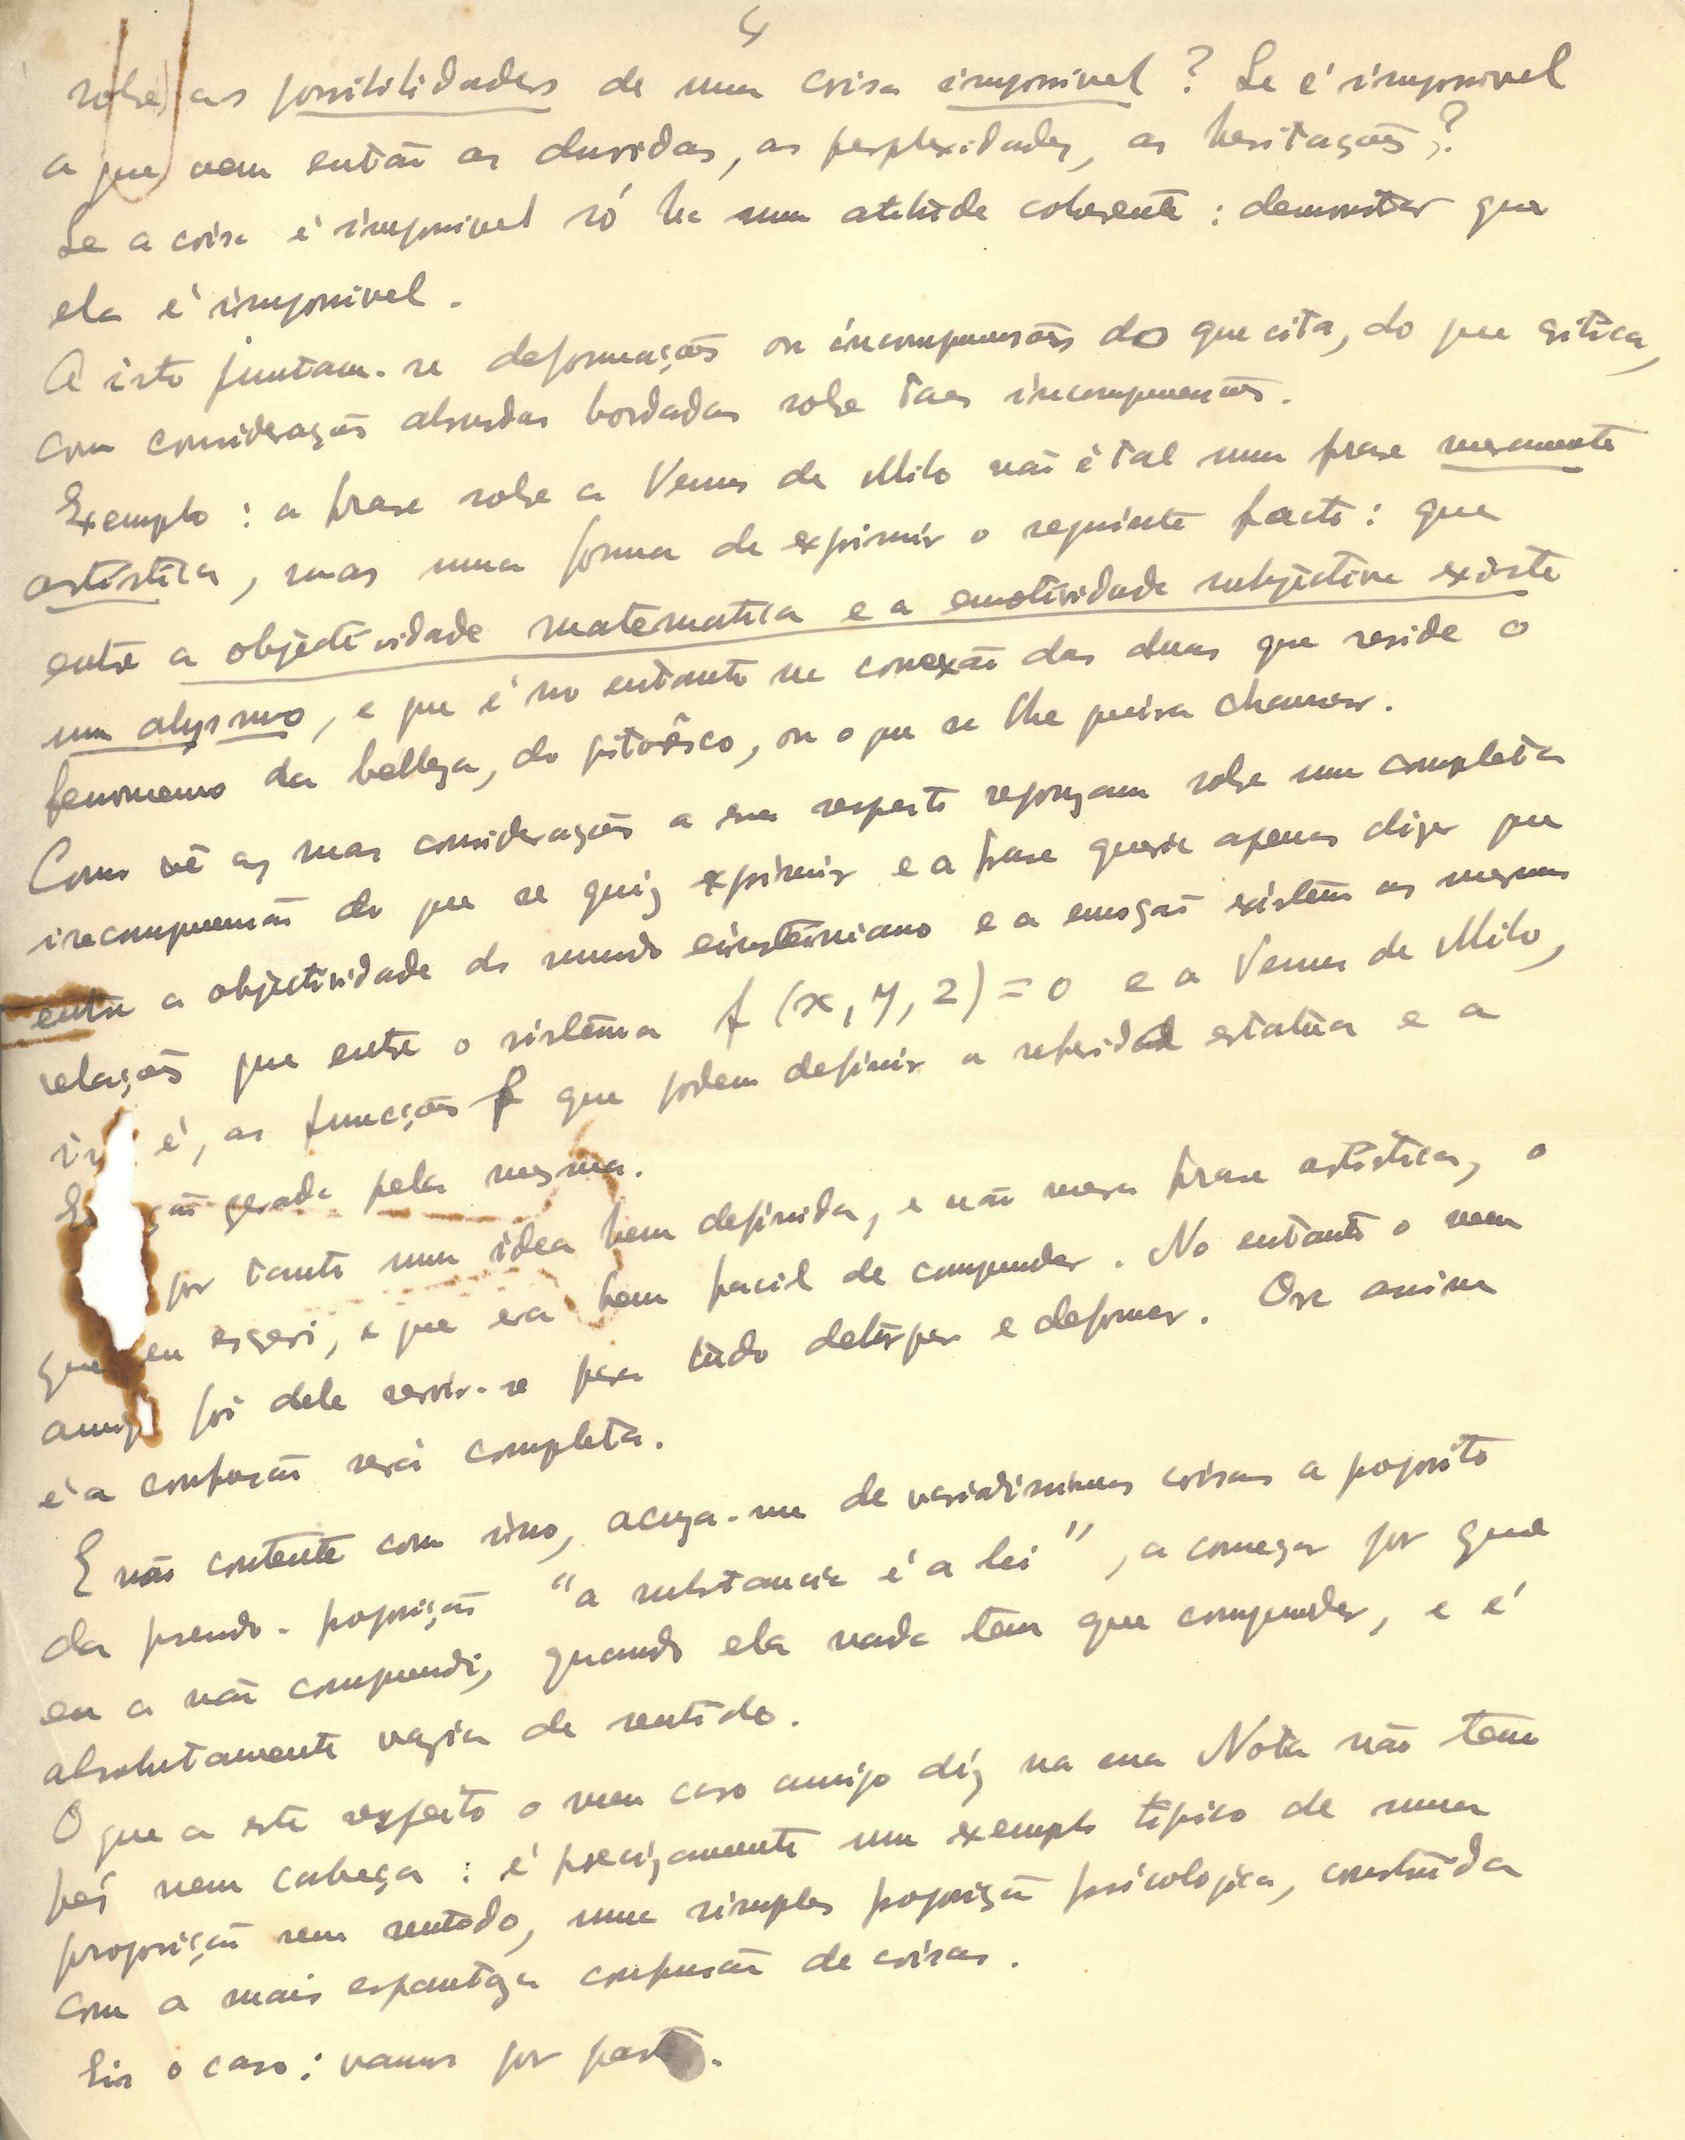 4
sobre as possibilidades de uma coisa impossivel? Se é impossivel
a que vem então as duvidas, as perplexidades, as hesitações?
Se a coisa é impossivel só ha uma atitude coherente: demonstrar que
ela é impossivel.
A isto juntam-se deformações ou incompreensões do que cita, do que critica,
com considerações absurdas bordadas sobre taes incompreensões.
Exemplo: a frase sobre a Venus de Milo não é tal uma frase meramente
artistica, mas uma forma de exprimir o seguinte facto: que
entre a objectividade matematica e a emotividade subjectiva existe
um abysmo, e que é no entanto na conexão das duas que reside o
fenomeno da belleza, do pitorêsco, ou o que se lhe queira chamar.
Como vê as suas considerações a esse respeito repouzam sobre uma completa
incompreensão do que se quiz exprimir e a frase queria apenas dizer que
entre a objectividade do mundo einsteiniano e a emoção existem as mesmas
relações que entre o sistema f (x, y, z) = 0 e a Venus de Milo,
é, as funcções f que podem definir a referida estatua e a
gerada pela mesma.
por tanto uma idea bem definida, e não mera frase artistica, o
que eu escrevi, e que era bem facil de compreender. No entanto o meu
amigo foi dele servir-se para tudo deturpar e deformar. Ora assim
é a confusão será completa.
E não contente com isso, acuza-me de variadissimas coisas a proposito
da pseudo-proposição "a substancia é a lei", a começar por que
eu a não compreendi, quando ela nada tem que compreender, e é
absolutamente vazia de sentido.
O que a este respeito o meu caro amigo diz na sua Nota não tem
pés nem cabeça: é precizamente um exemplo tipico de uma
proposição sem sentido, uma simples proposição psicologica, construida
com a mais espantoza confusão de coisas.
Eis o caso: vamos por partes.